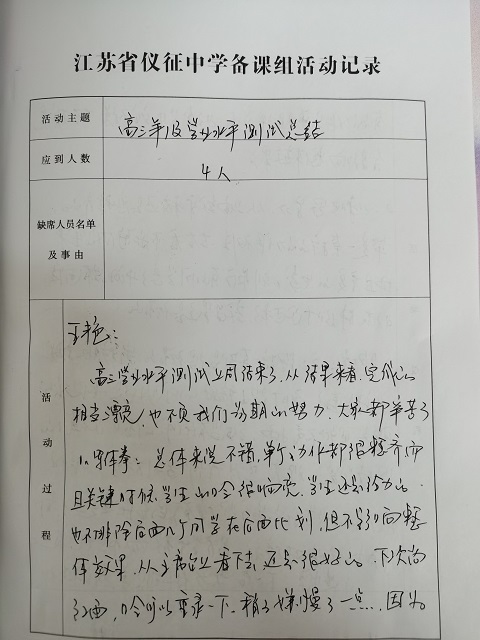 江苏省仪征中学备课组活动记录
活动主题
高三年级学业水平测试总结
应到人数
4人
缺席人员名单
及事由
活动过程
王艳:
高三学业水平测试上周结束了,从结果来看,完成的
相当漂亮,也不负我们前期的努力,大家都辛苦了
总体来说不错,单个动作都很整齐,而
且关键时候学生的口令很响亮,学生还是给力的。
也不排除后面几个同学在后面比划,但不影响整
体效果,从主席台看下去,还是很好的。下次
口令可以 录一下,稍稍嫌慢了一点,因为